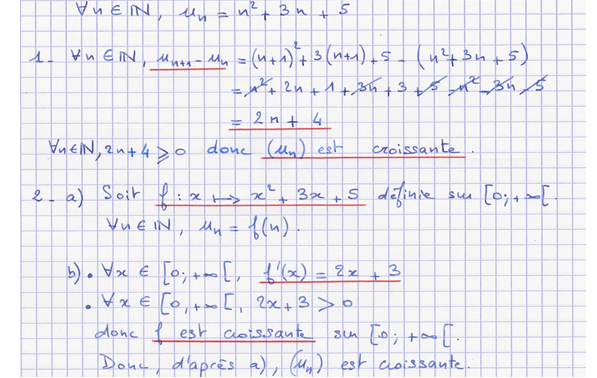 ∀n ∈ ℕ, uₙ = n² + 3n + 5
1- ∀n ∈ ℕ, uₙ₊₁ - uₙ = (n+1)² + 3(n+1) + 5 - (n² + 3n + 5)
= n² + 2n + 1 + 3n + 3 + 5 - n² - 3n - 5
= 2n + 4
∀n∈ℕ, 2n+4 ⩾ 0 donc (uₙ) est croissante.
2- a) Soit f : x ↦ x² + 3x + 5 définie sur [0; +∞[.
∀n ∈ ℕ, uₙ = f(n).
b) • ∀x ∈ [0; +∞[, f'(x) = 2x + 3
• ∀x ∈ [0, +∞[, 2x+3 > 0
donc f est croissante sur [0; +∞[.
Donc, d'après a), (uₙ) est croissante.